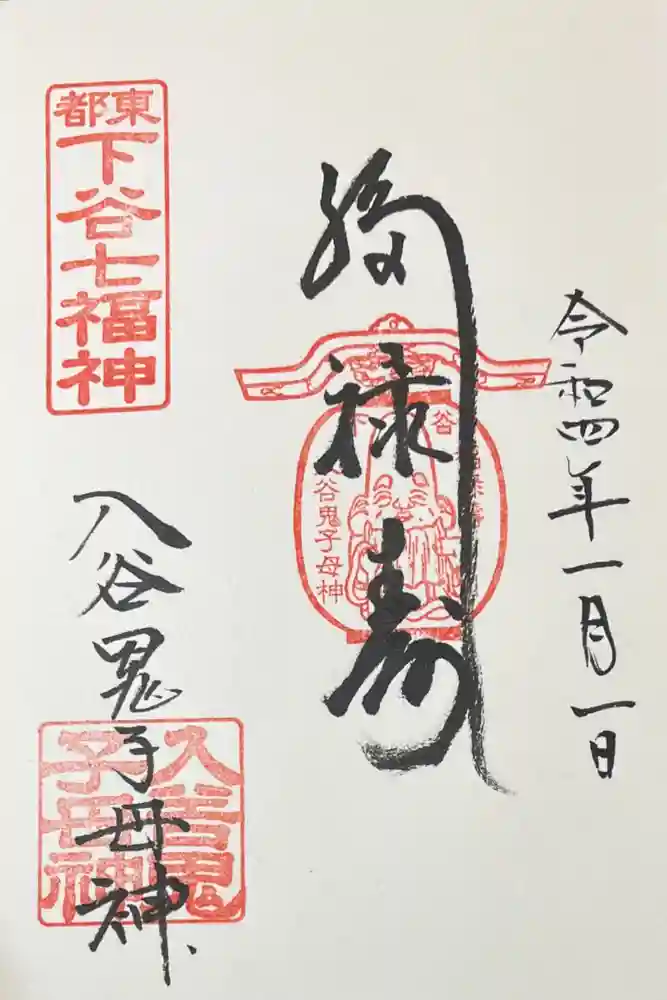 令和四年一月一日
福禄寿
下谷
福禄壽
入谷鬼子母神
東都
下谷七福神
入谷鬼子母神
入谷鬼
子母神